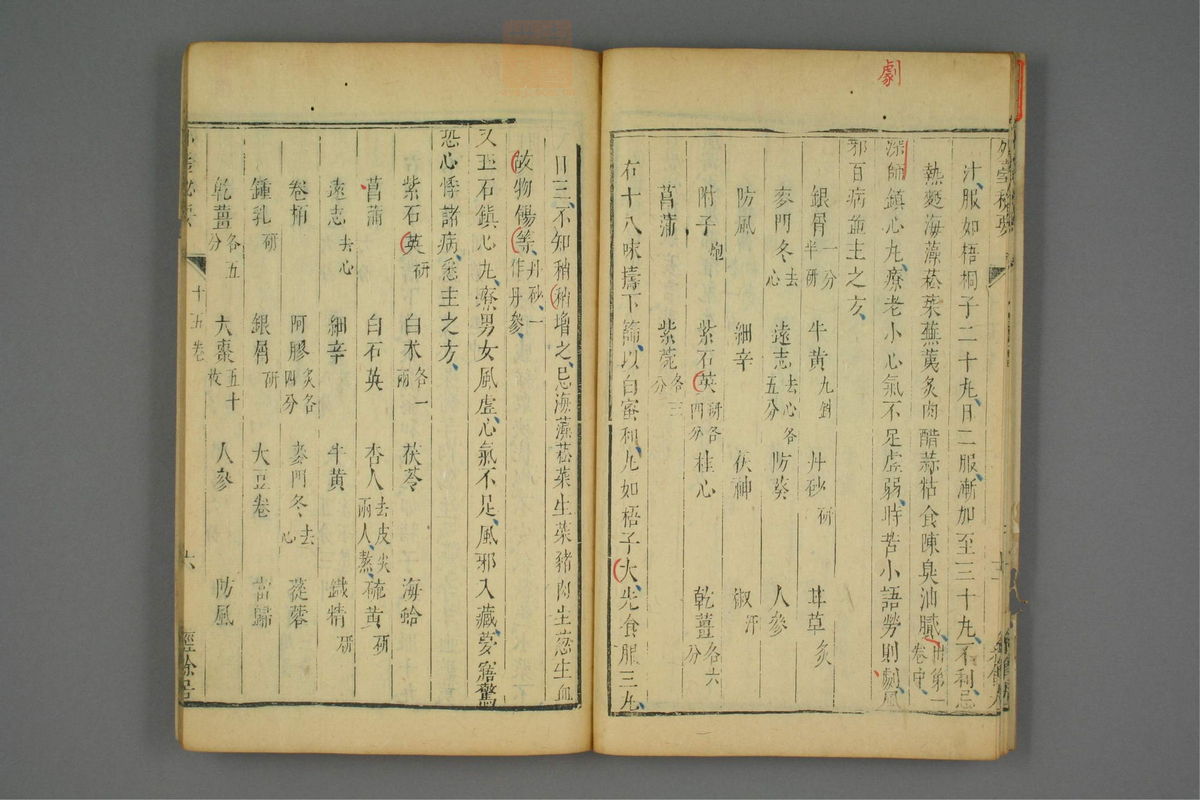 劇
外臺秘要
汁服如梧桐子二十丸日二服漸加至三十丸不利忌
熱麵海藻菘菜蕪荑炙肉醋蒜粘食陳臭油膩出第一卷中
深師鎮心丸療老小心氣不足虛弱時苦小語勞則劇風
邪百病並主之方
銀屑一分半研 牛黃九銖 丹砂研 甘草炙
麥門冬去心 遠志去心各五分 防葵 人參
防風 細辛 茯神 椒汗
附子炮 紫石英研各四分 桂心 乾薑各六分
菖蒲 紫菀各三分
右十八味擣下篩以白蜜和丸如梧子大先食服三丸
日三不知稍稍增之忌海藻菘菜生菜豬肉生葱生血
故物餳等丹砂一作丹參
又玉石鎮心丸療男女風虛心氣不足風邪入藏夢寤驚
恐心悸諸病悉主之方
紫石英研 白朮各一兩 茯苓 海蛤
菖蒲 白石英 杏人去皮尖兩人熬 硫黃研
遠志去心 細辛 牛黃 鐵精研
卷柏 阿膠炙各四分 麥門冬去心 蓯蓉
鍾乳研 銀屑研 大豆卷 當歸
乾薑各五分 大棗五十枚 人參 防風
十五卷
六
經餘居